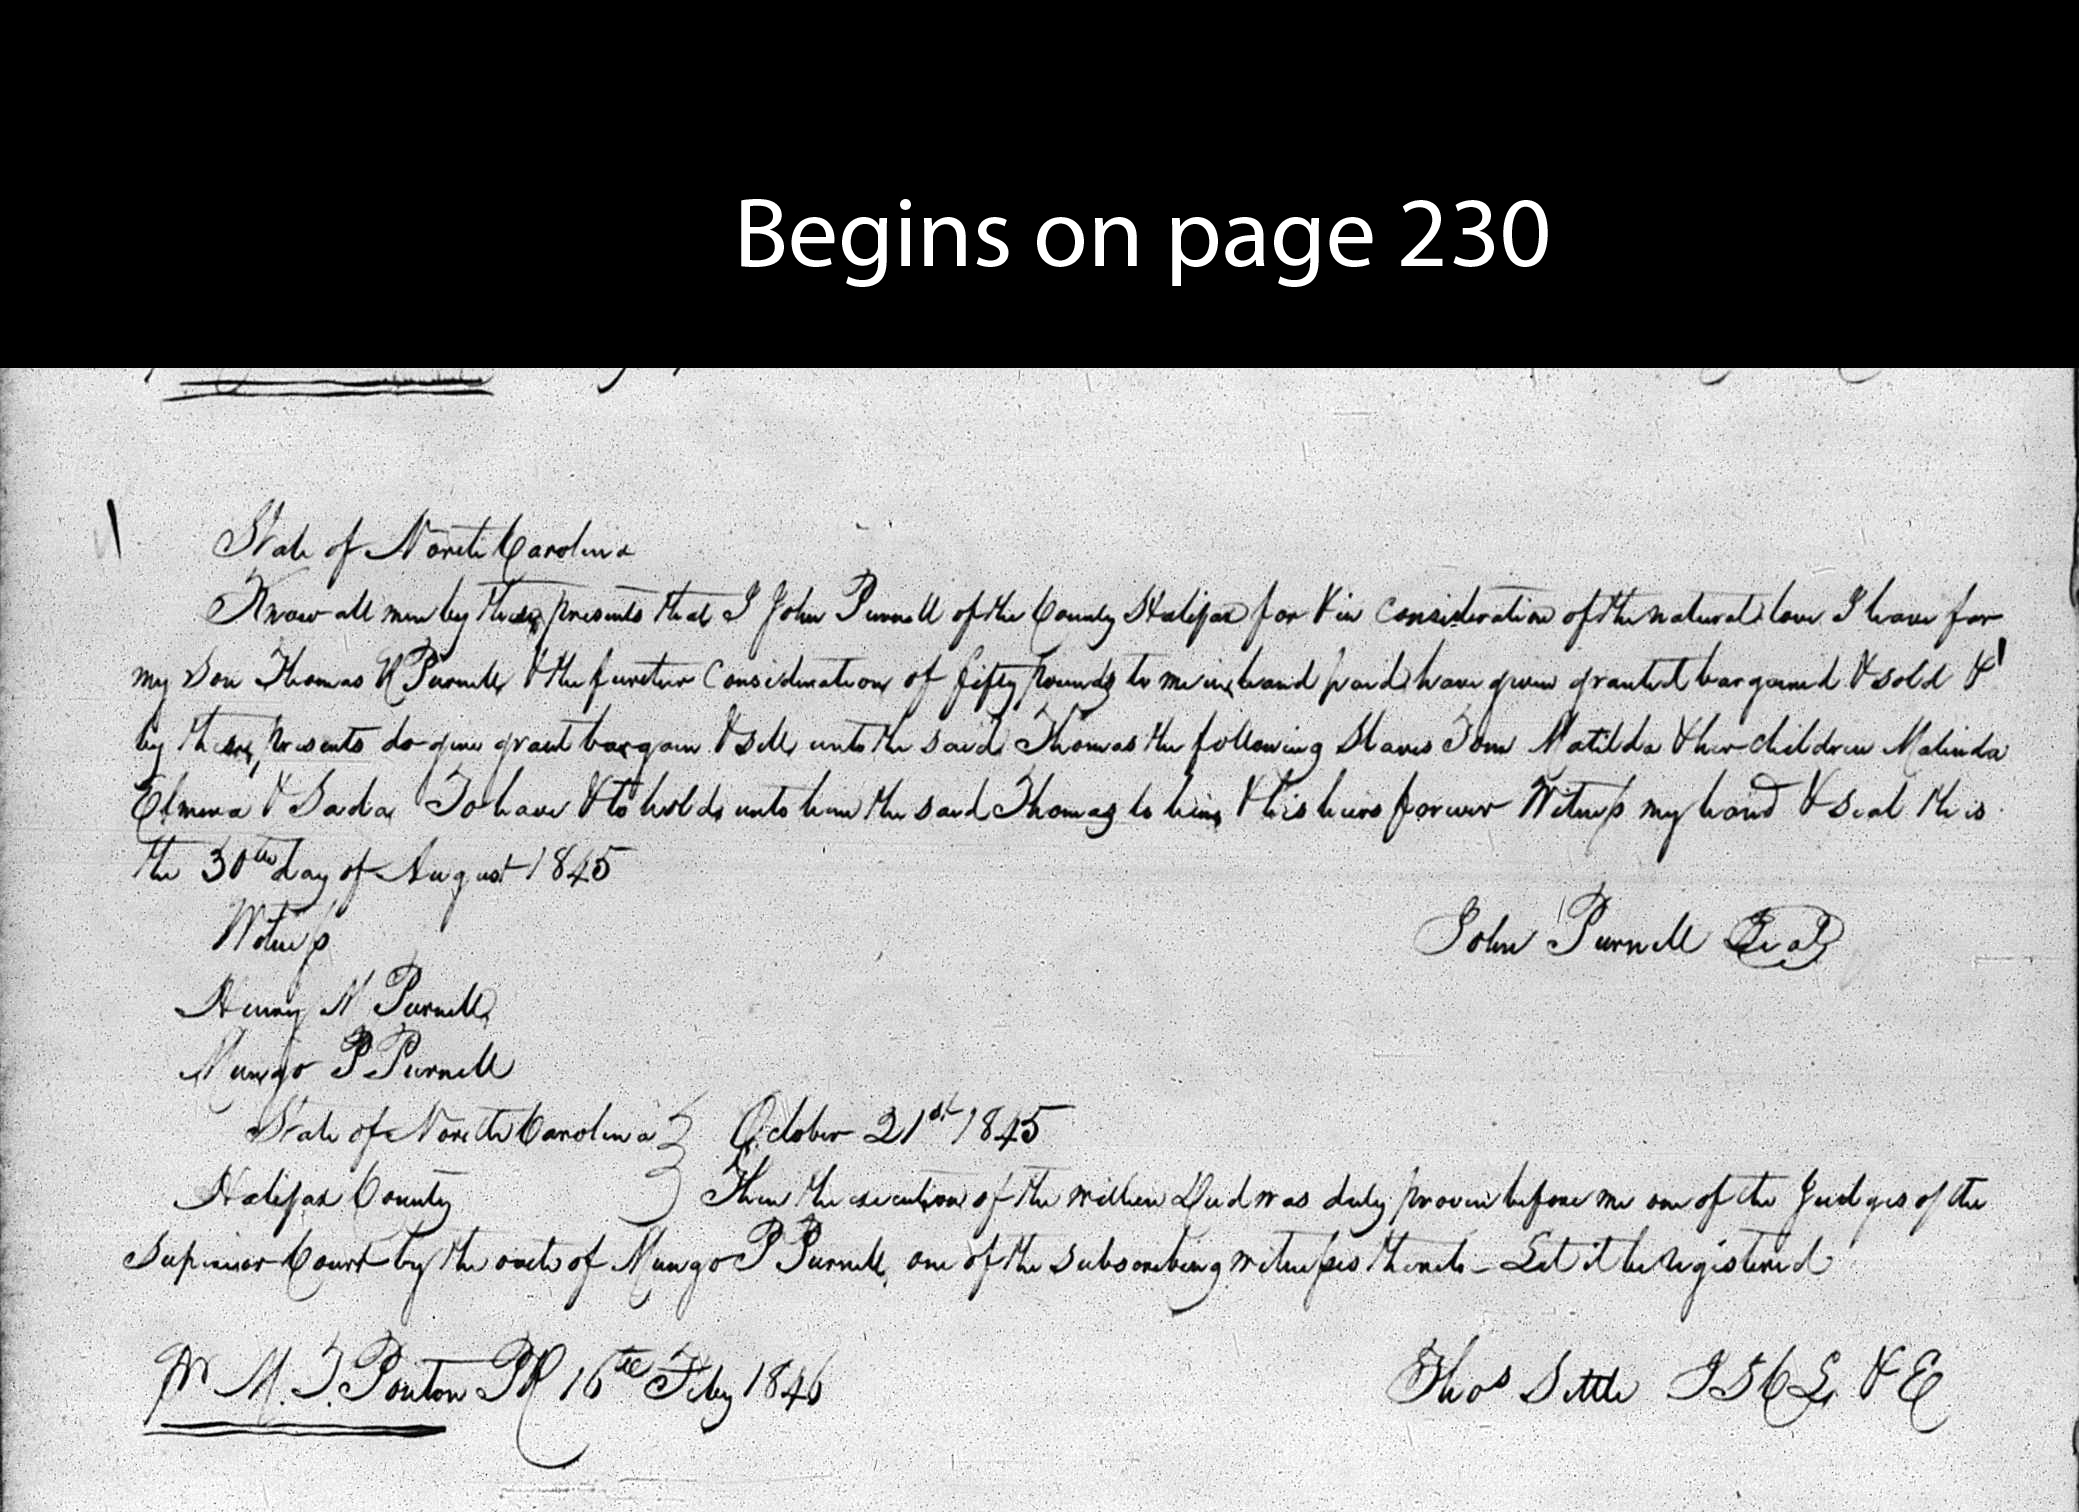 Begins on page 230
State of North Carolina
Know all men by these presents that I John Purnell of the County Halifax for & in consideration of the natural love I have for
my Son Thomas Purnell & the further Consideration of fifty pounds to me in hand paid have given granted bargained & sold &
by these presents do give grant bargain & sell unto the said Thomas the following Slaves Tom Matilda & her children Malinda
Elmina & Sada To have & to hold unto him the said Thomas to him & his heirs forever Witness my hand & seal this
the 30th day of August 1845
Witness
John Purnell Seal
Henry N Purnell
Mungo P Purnell
State of North Carolina } October 21st 1845
Halifax County } Then the execution of the within Deed was duly proven before me one of the Judges of the
Superior Court by the oath of Mungo P Purnell one of the subscribing witnesses thereto - Let it be registered
Pr M. T. Ponton PR 16th Feby 1846
Thos Settle J S C L & E